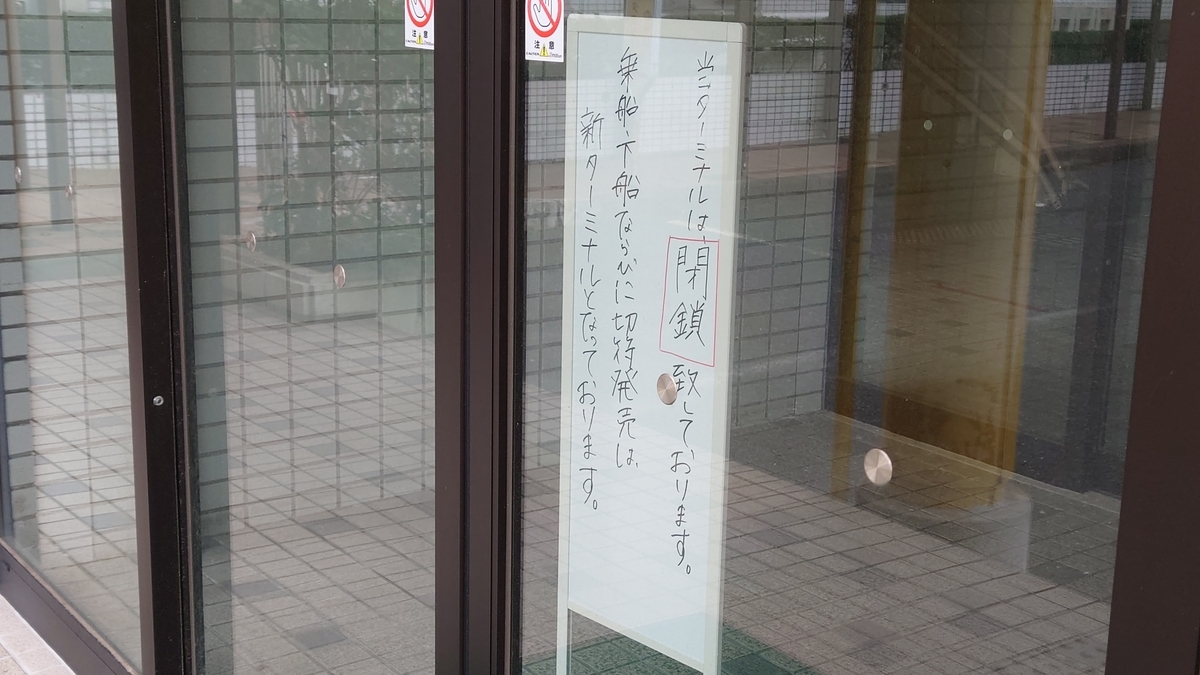 当ターミナルは、閉鎖致しております。
乗船・下船ならびに切符発売は、
新ターミナルとなっております。
注意
注意